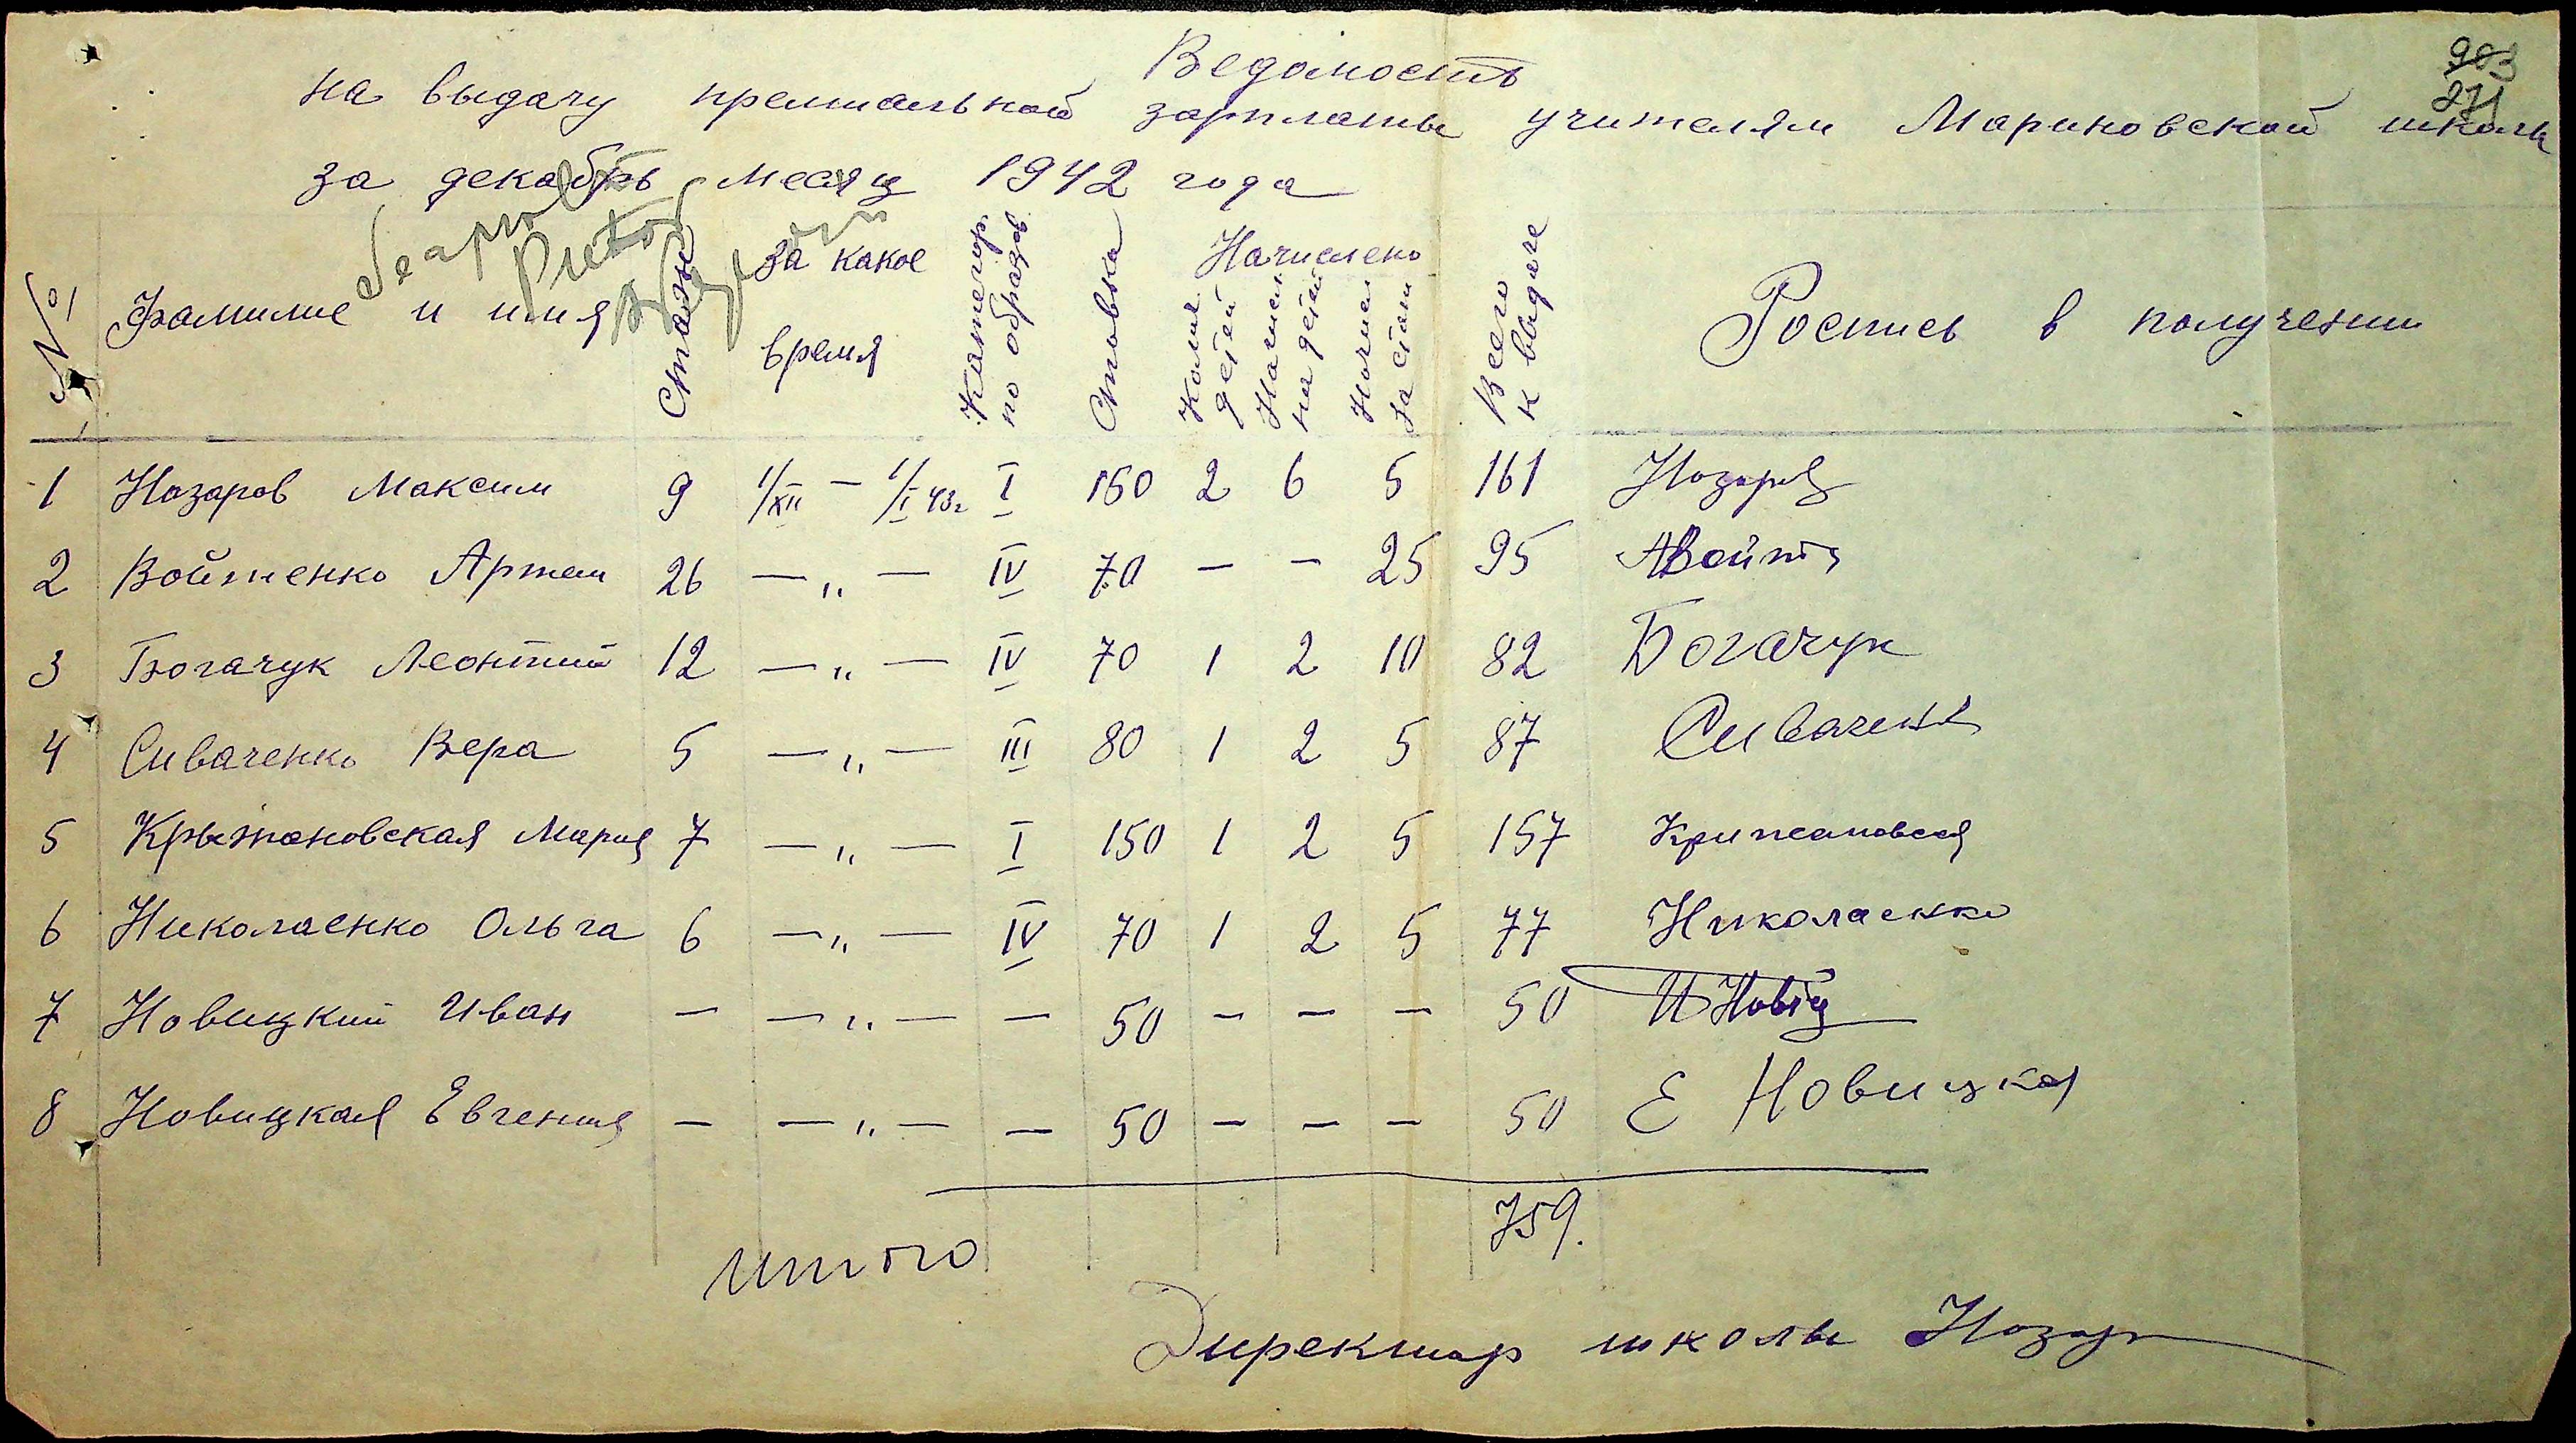 Ведомость
983
271
на выдачу премиальной зарплаты учителям Мариновской школы
за декабрь месяц 1942 года
№ Фамилие и имя Стаж За какое время Категор. по образов. Ставка Начислено Колич. детей Начисл. на детей Начисл. за стаж Всего к выдаче Роспись в получении
1 Назаров Максим 9 1/XII – 1/I 43г I 150 2 6 5 161 Назаров
2 Войтенко Артем 26 — „ — IV 70 – – 25 95 АВойт
3 Богачук Леонтий 12 — „ — IV 70 1 2 10 82 Богачук
4 Сиваченко Вера 5 — „ — III 80 1 2 5 87 Сиваченк
5 Крыжановская Мария 7 — „ — I 150 1 2 5 157 Крижановская
6 Николаенко Ольга 6 — „ — IV 70 1 2 5 77 Николаенко
7 Новицкий Иван – — „ — – 50 – – – 50 И Новиц
8 Новицкая Евгения – — „ — – 50 – – – 50 Е Новицкая
Итого 759.
Директор школы Назар